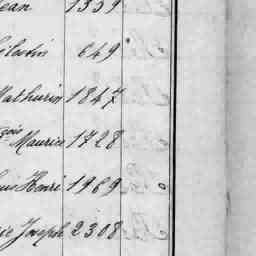 ean 1359
élestin 649
Mathurin 1847
çois Maurice 1728
uis Henri 1969
ie Joseph 2308